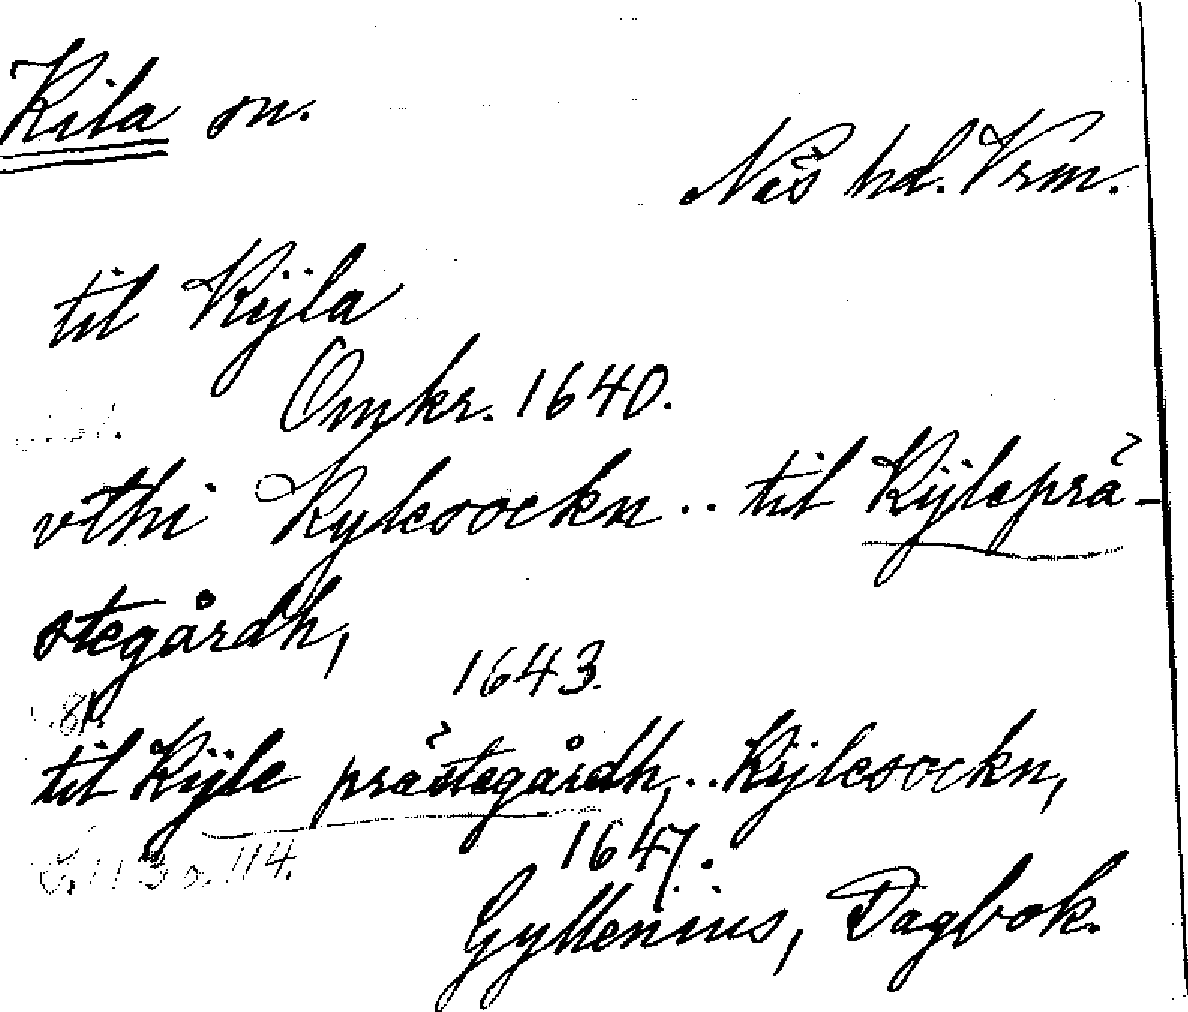 Kila sn.
Näs hd. Vrm.
til Kÿla
Omkr. 1640.
vthi Kylesockn .. til Kÿleprä-
stegårdh,
1643.
til Kÿle prästegårdh, .. Kÿlesockn,
S. 113 o. 114.
1647.
Gyllenius, Dagbok.